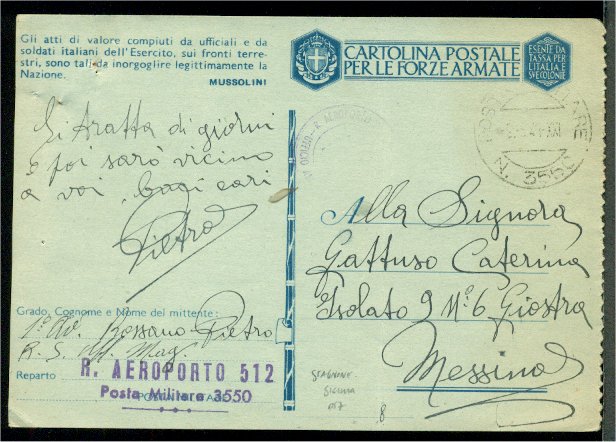 Gli atti di valore compiuti da ufficiali e da
soldati italiani dell'Esercito, sui fronti terre-
stri, sono tali da inorgoglire legittimamente la
Nazione.
MUSSOLINI
CARTOLINA POSTALE
PER LE FORZE ARMATE
ESENTE DA
TASSA PER
L'ITALIA E
SVE COLONIE
Si tratta di giorni
e poi sarò vicino
a voi baci cari
Pietro
N. 3550
Alla Signora
Gattuso Caterina
Isolato 9 N° 6 Giostra
Messina
Grado, Cognome e Nome del mittente:
1° Av. Rossano Pietro
R. S. Mag.
Reparto
R. AEROPORTO 512
Posta Militare 3550
SICILIA
8